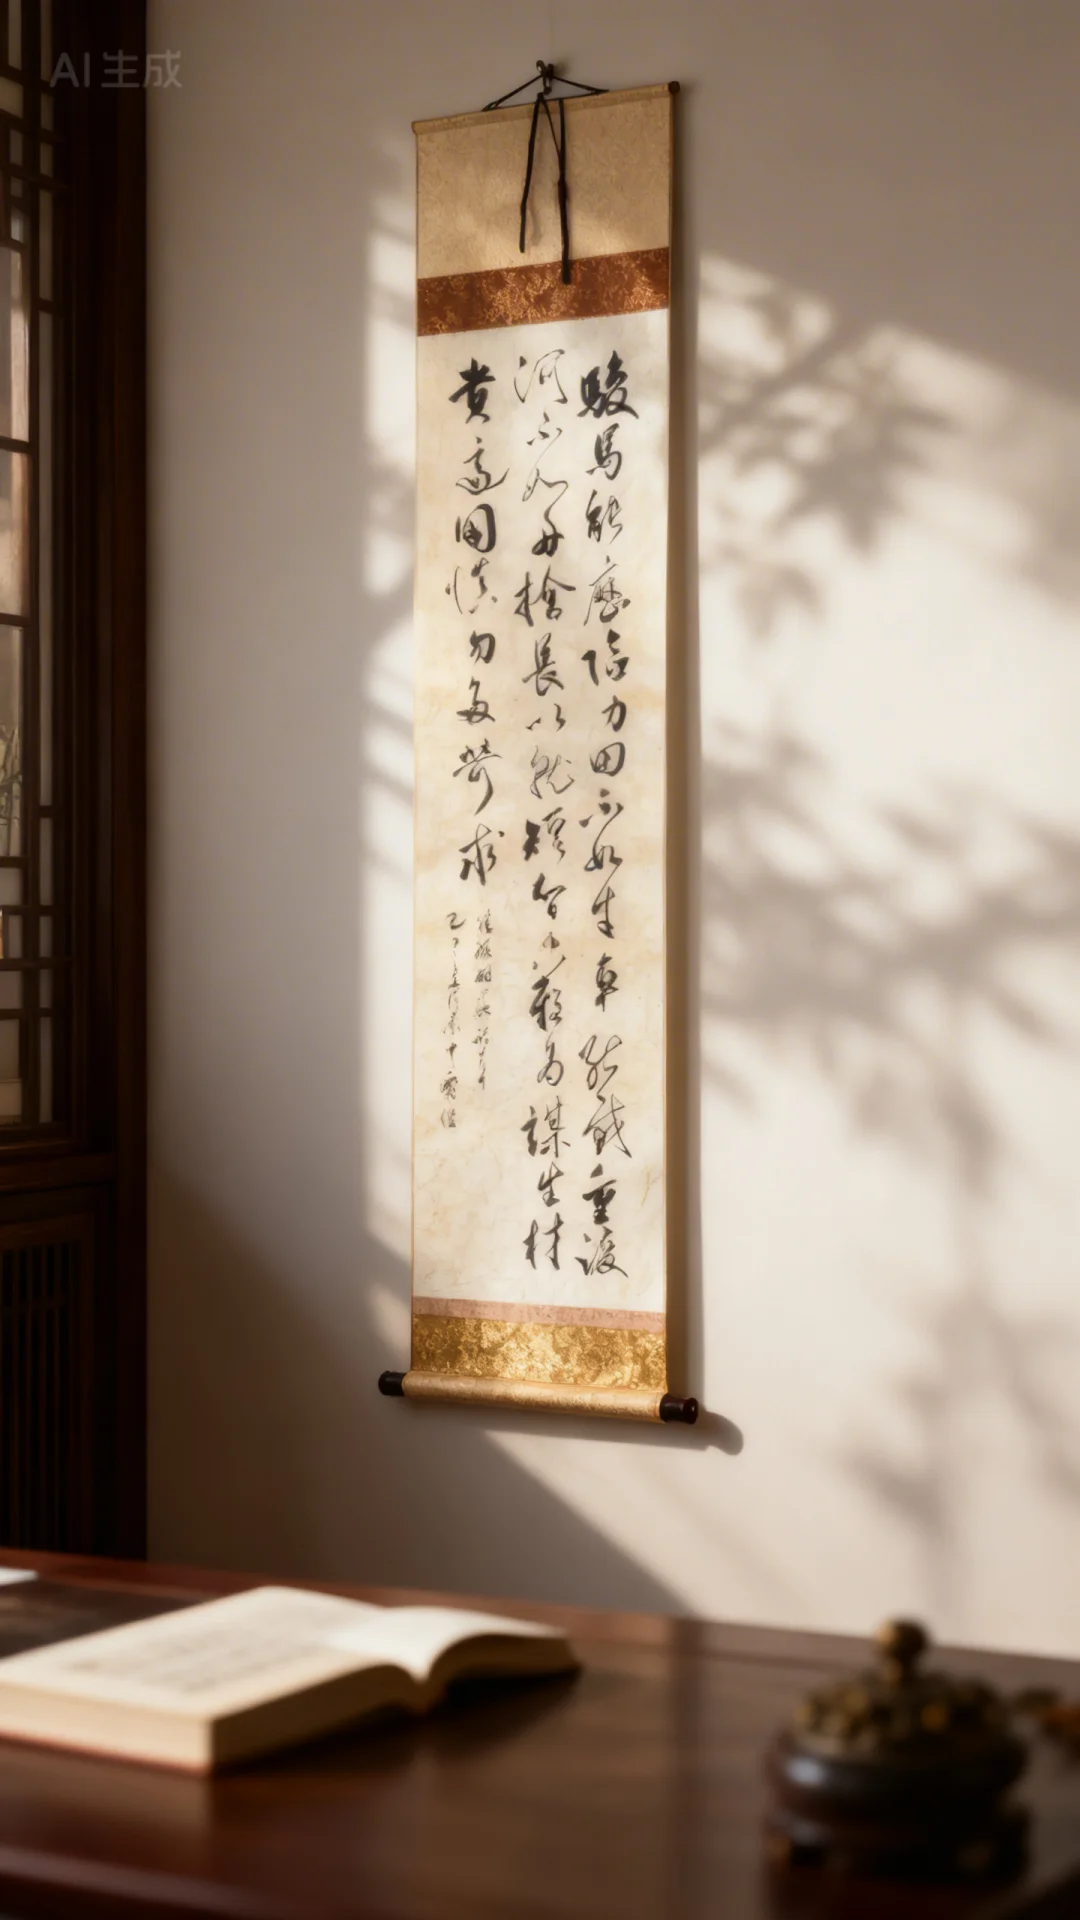 AI生成
駿馬能歷險力田不如牛車能載重渡
河不如舟捨長以就短智者難為謀生材
貴適用慎勿多苛求